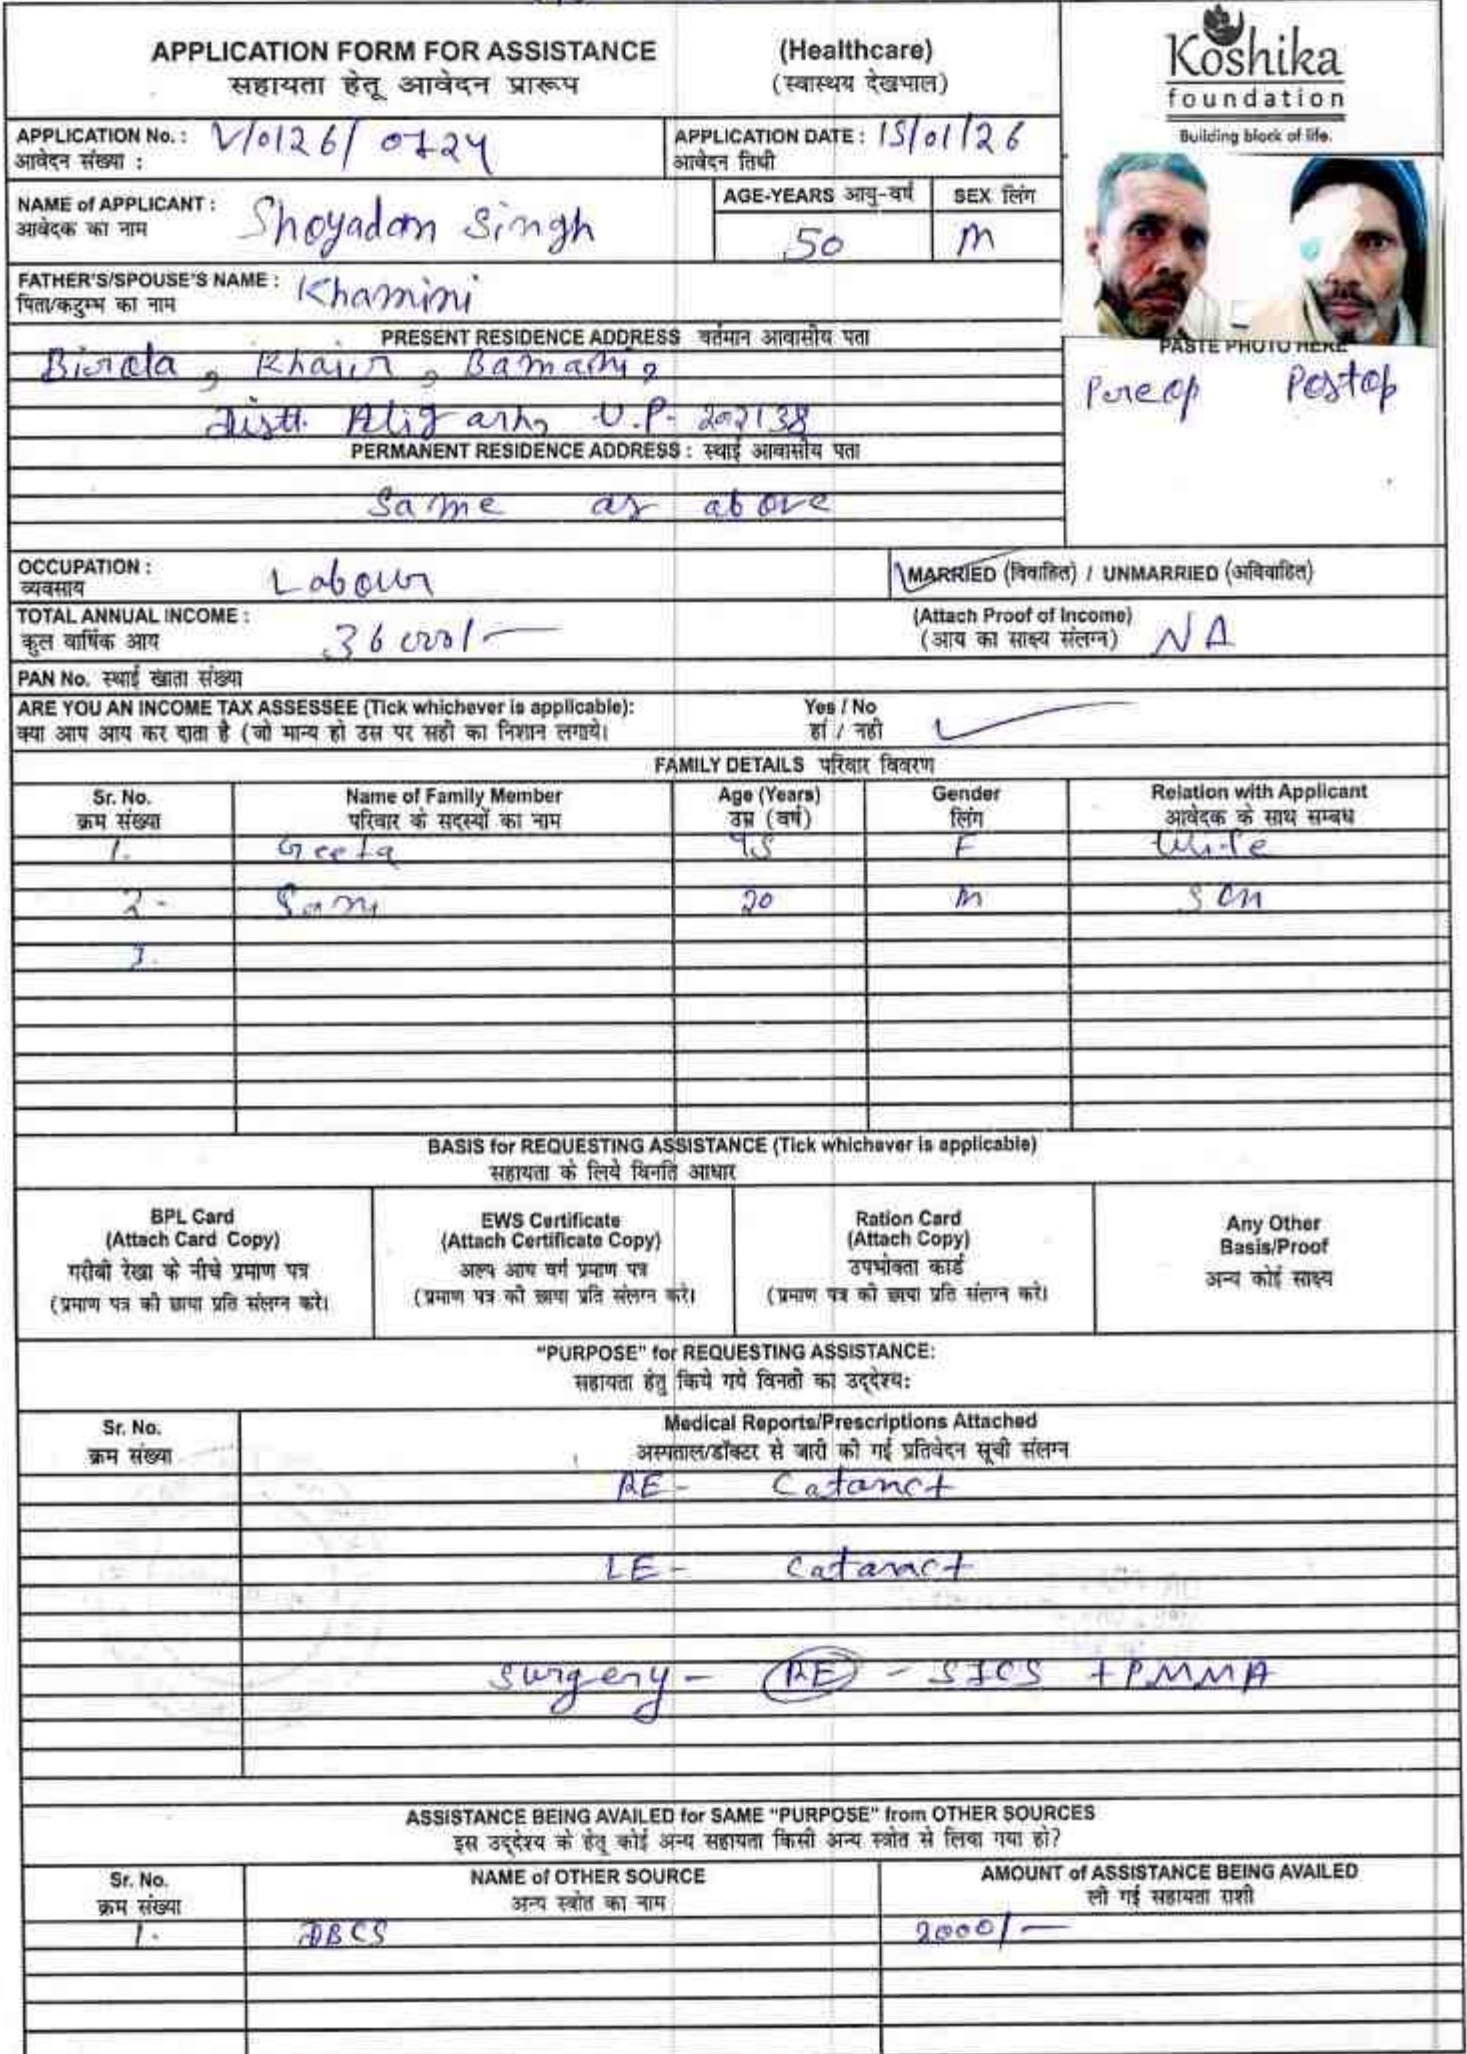 APPLICATION FORM FOR ASSISTANCE (Healthcare)
सहायता हेतू आवेदन प्रारूप (स्वास्थय देखभाल)
Koshika
foundation
Building block of life.
APPLICATION No. : V/0126/0724 APPLICATION DATE : 15/01/26
आवेदन संख्या : आवेदन तिथी
NAME of APPLICANT : Shoyadan Singh AGE-YEARS आयु-वर्ष 50 SEX लिंग M
आवेदक का नाम
FATHER'S/SPOUSE'S NAME : Khamini
पिता/कटुम्भ का नाम
PRESENT RESIDENCE ADDRESS वर्तमान आवासीय पता
PASTE PHOTO HERE
Preop Postop
Khair,
Distt. Aligarh, U.P- 202138
PERMANENT RESIDENCE ADDRESS : स्थाई आवासीय पता
Same as above
OCCUPATION : Labour MARRIED (विवाहित) / UNMARRIED (अविवाहित)
व्यवसाय
TOTAL ANNUAL INCOME : 36000/- (Attach Proof of Income) NA
कुल वार्षिक आय (आय का साक्ष्य संलग्न)
PAN No. स्थाई खाता संख्या
ARE YOU AN INCOME TAX ASSESSEE (Tick whichever is applicable): Yes / No
क्या आप आय कर दाता है (जो मान्य हो उस पर सही का निशान लगाये। हां / नही
FAMILY DETAILS परिवार विवरण
Sr. No. Name of Family Member Age (Years) Gender Relation with Applicant
क्रम संख्या परिवार के सदस्यों का नाम उम्र (वर्ष) लिंग आवेदक के साथ सम्बध
1. Geeta 45 F Wife
2- 20 M Son
3.
BASIS for REQUESTING ASSISTANCE (Tick whichever is applicable)
सहायता के लिये विनति आधार
BPL Card
(Attach Card Copy)
गरीबी रेखा के नीचे प्रमाण पत्र
(प्रमाण पत्र की छाया प्रति संलग्न करे।
EWS Certificate
(Attach Certificate Copy)
अल्प आय वर्ग प्रमाण पत्र
(प्रमाण पत्र की छाया प्रति संलग्न करे।
Ration Card
(Attach Copy)
उपभोक्ता कार्ड
(प्रमाण पत्र की छाया प्रति संलग्न करे।
Any Other
Basis/Proof
अन्य कोई साक्ष्य
"PURPOSE" for REQUESTING ASSISTANCE:
सहायता हेतु किये गये विनती का उद्देश्य:
Sr. No. Medical Reports/Prescriptions Attached
क्रम संख्या अस्पताल/डॉक्टर से जारी की गई प्रतिवेदन सूची संलग्न
RE- Cataract
LE- Cataract
Surgery- RE - SICS + PMMA
ASSISTANCE BEING AVAILED for SAME "PURPOSE" from OTHER SOURCES
इस उद्देश्य के हेतू कोई अन्य सहायता किसी अन्य स्त्रोत से लिया गया हो?
Sr. No. NAME of OTHER SOURCE AMOUNT of ASSISTANCE BEING AVAILED
क्रम संख्या अन्य स्त्रोत का नाम ली गई सहायता राशी
1. DBCS 2000/-